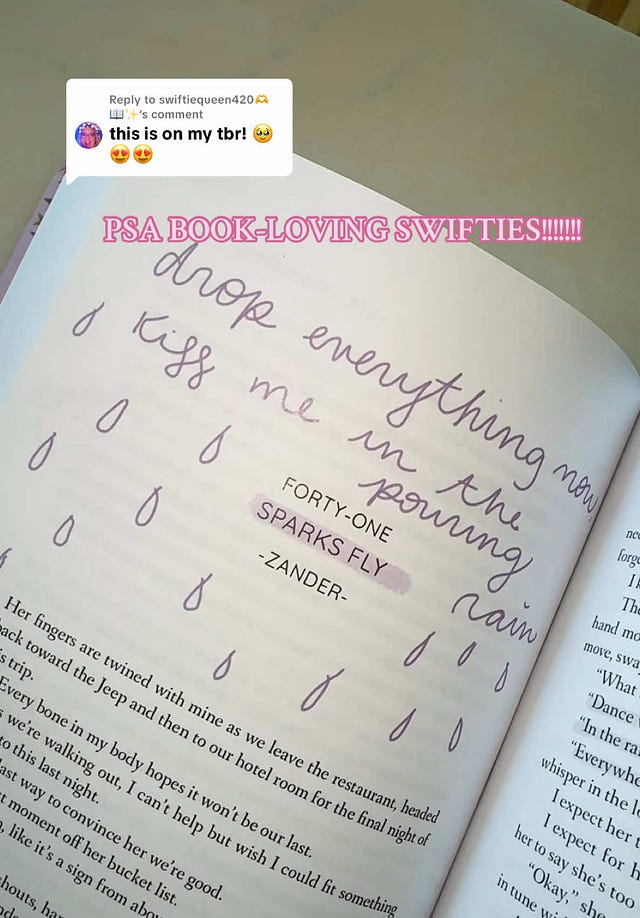 Reply to swiftiequeen420🫶
📖✨'s comment
this is on my tbr! 🥹
😍😍
PSA BOOK-LOVING SWIFTIES!!!!!!!
drop everything now,
Kiss me in the
pouring
rain
FORTY-ONE
SPARKS FLY
-ZANDER-
Her fingers are twined with mine as we leave the restaurant, headed
back toward the Jeep and then to our hotel room for the final night of
trip.
Every bone in my body hopes it won't be our last.
we're walking out, I can't help but wish I could fit something
to this last night.
last way to convince her we're good.
moment off her bucket list.
like it's a sign from
hand
move,
"What
"Dance
"In the
whisper in the
I expect her
I expect for
her to say she's too
"Okay,"
in tune